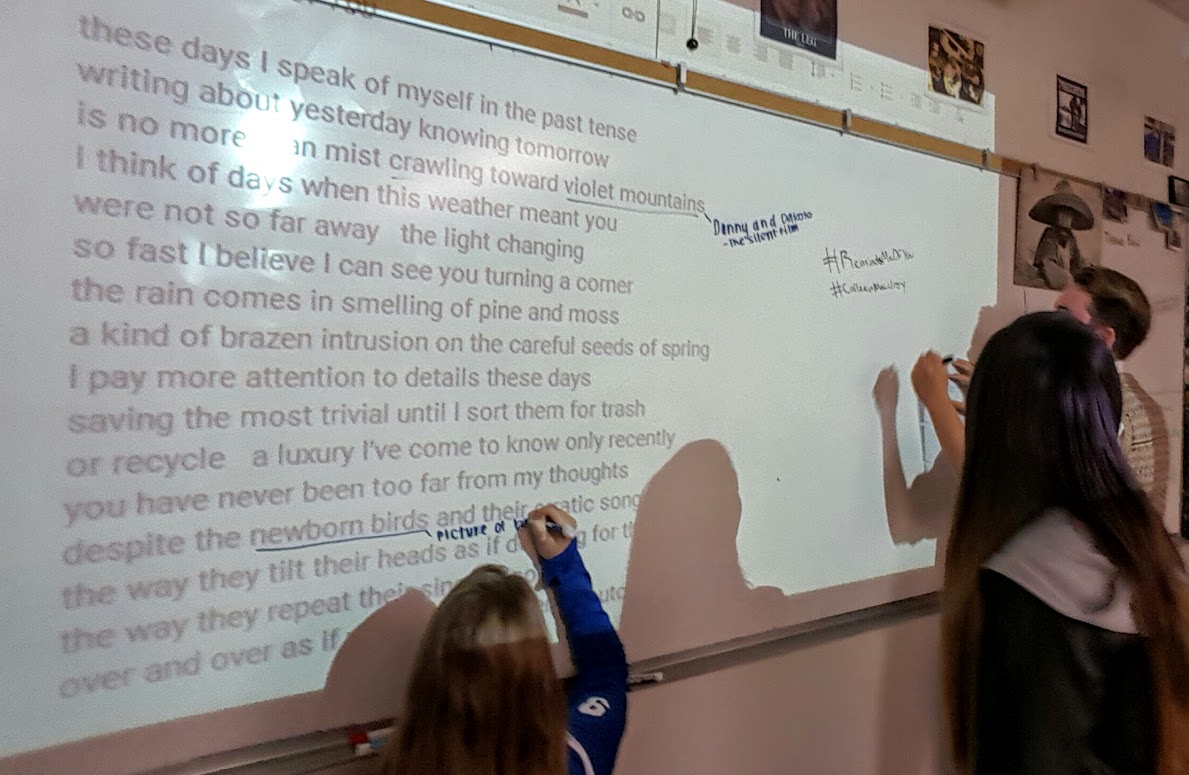 THE
these days I speak of myself in the past tense
writing about yesterday knowing tomorrow
is no more an mist crawling toward violet mountains
I think of days when this weather meant you
were not so far away the light changing
so fast I believe I can see you turning a corner
the rain comes in smelling of pine and moss
a kind of brazen intrusion on the careful seeds of spring
I pay more attention to details these days
saving the most trivial until I sort them for trash
or recycle a luxury I've come to know only recently
you have never been too far from my thoughts
despite the newborn birds and their atic song
the way they tilt their heads as if for
the way they repeat their
over and over as if
Danny and Dakota
-the silent film
picture of
6